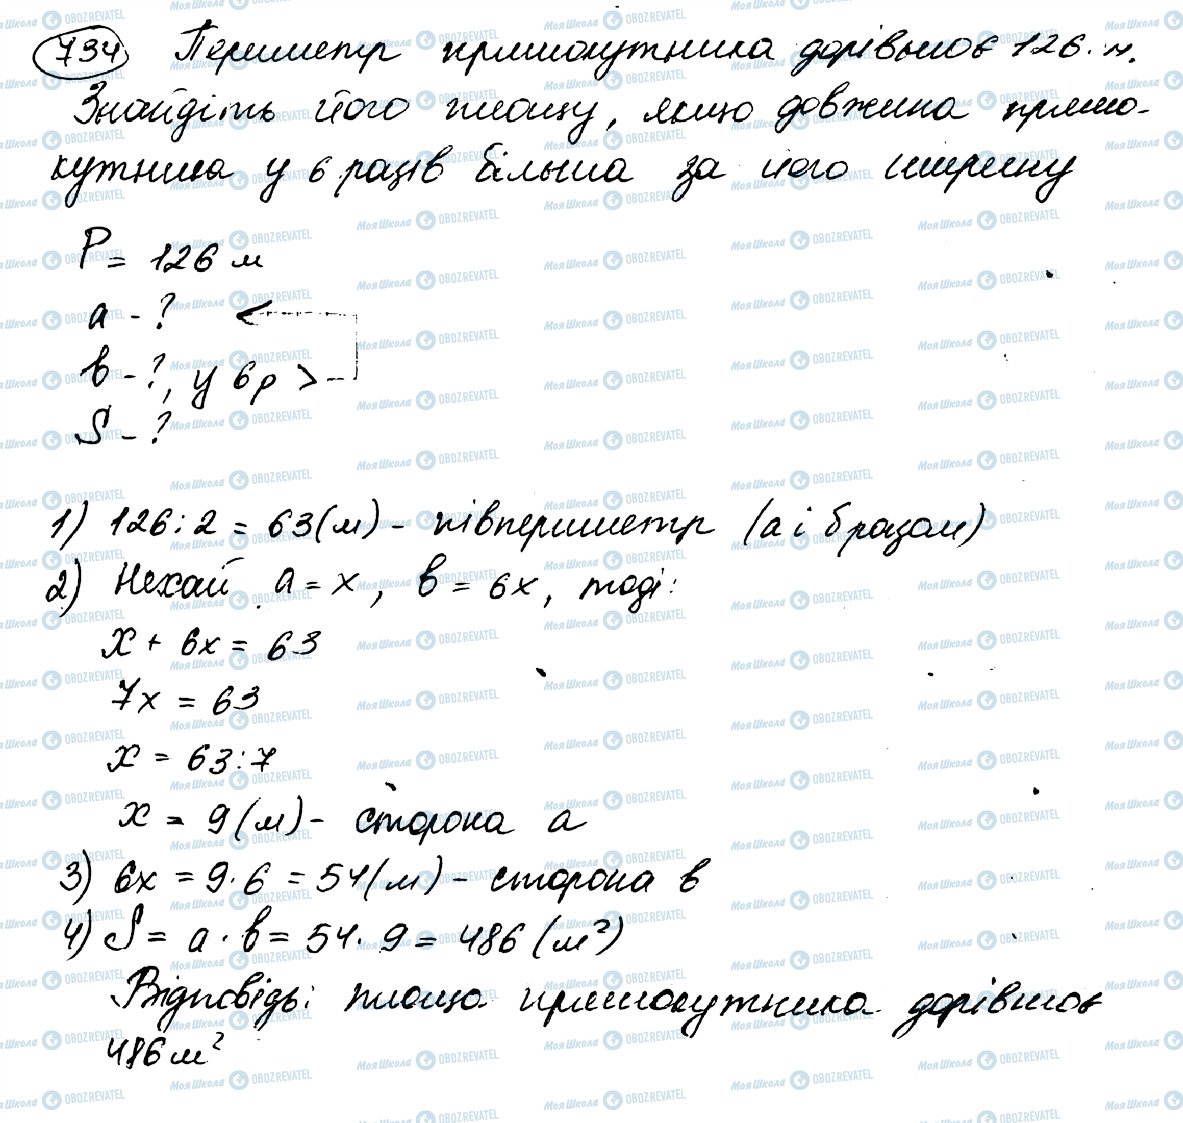 734 Периметр прямокутника дорівнює 126 м.
Знайдіть його площу, якщо довжина прямо-
кутника у 6 разів більша за його ширину
P = 126 м
a - ?
b - ?, у 6 р >
S - ?
1) 126 : 2 = 63 (м) - півпериметр (a і b разом)
2) Нехай a = x, b = 6x, тоді:
x + 6x = 63
7x = 63
x = 63 : 7
x = 9 (м) - сторона a
3) 6x = 9 · 6 = 54 (м) - сторона b
4) S = a · b = 54 · 9 = 486 (м²)
Відповідь: площа прямокутника дорівнює
486 м²
Моя Школа OBOZREVATEL